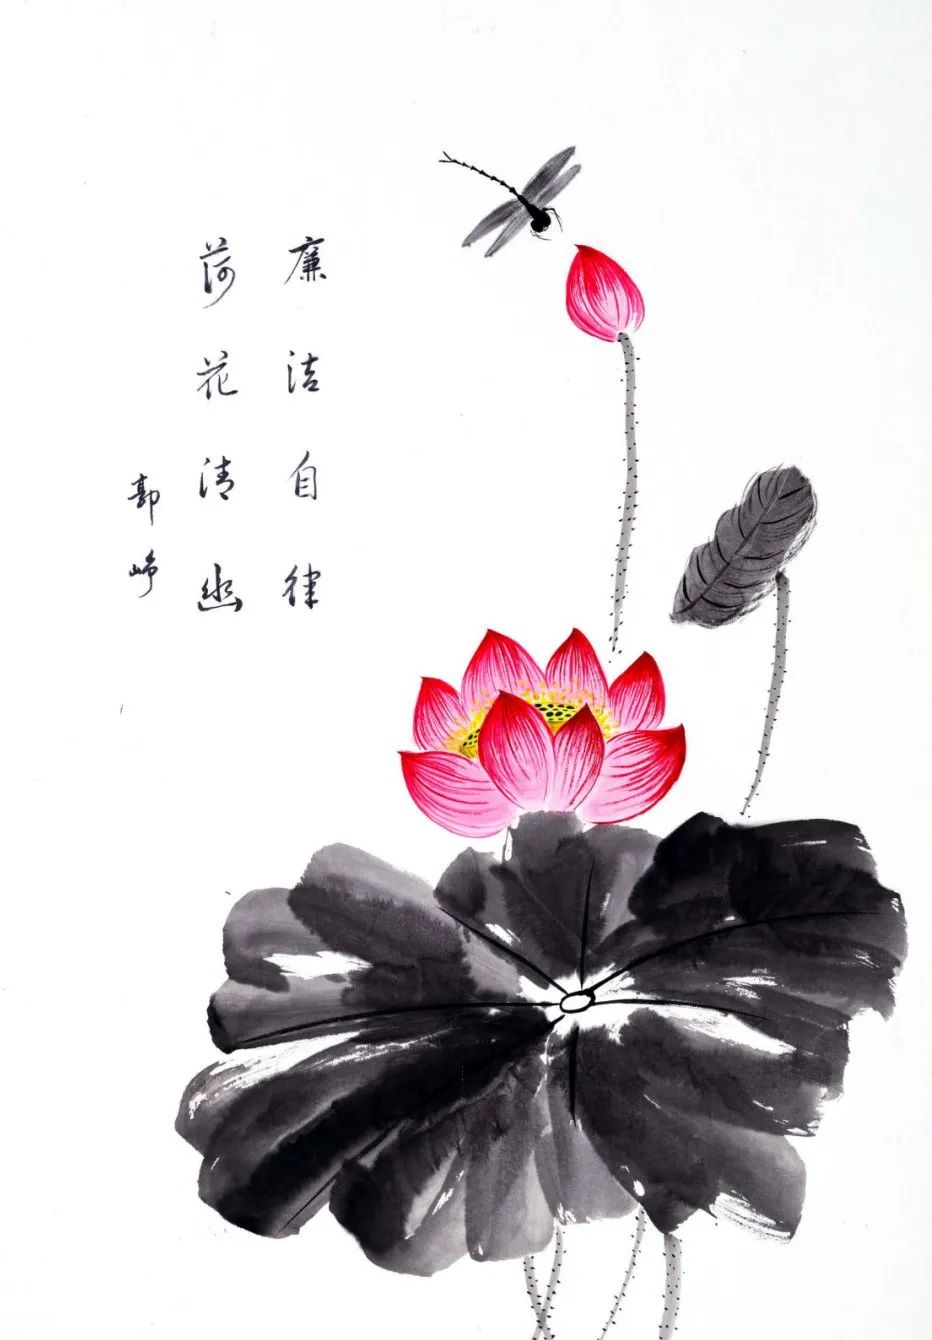 廉洁自律
荷花清幽
郭峥